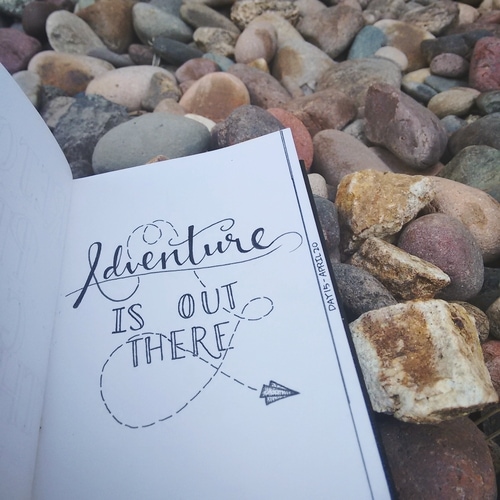 Adventure
IS OUT
THERE
DAY 15 - APRIL 20